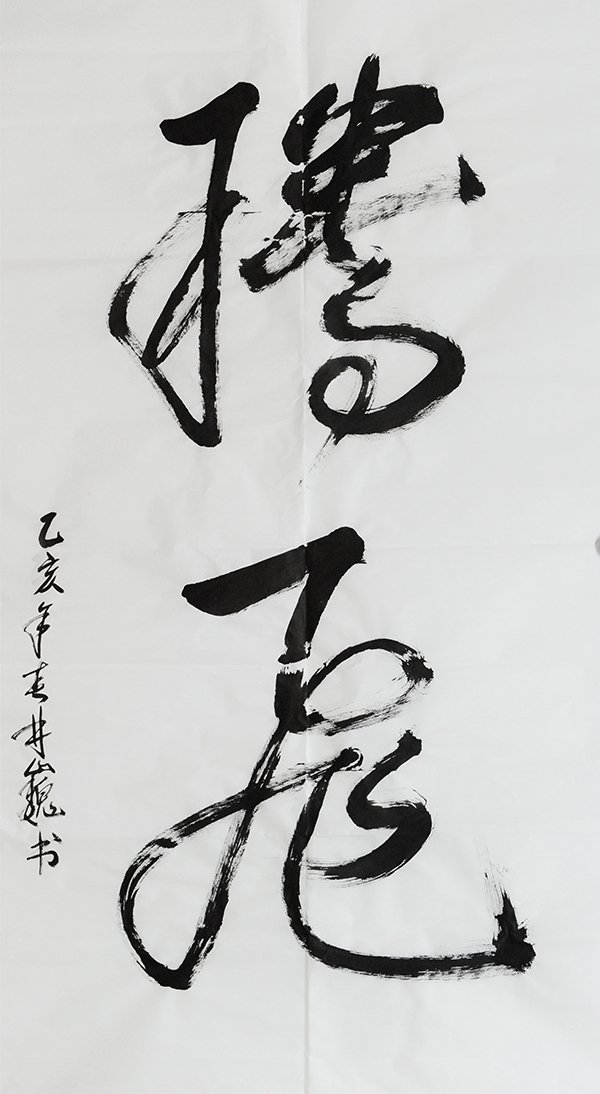 腾飞
乙亥年春井巍书